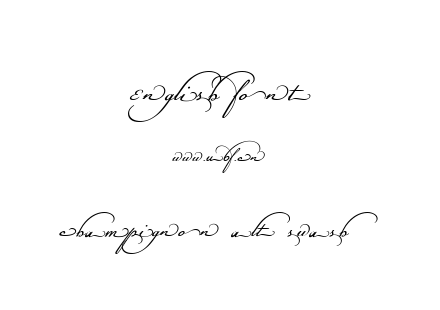 english font
www.wbf.cn
champignon alt swash